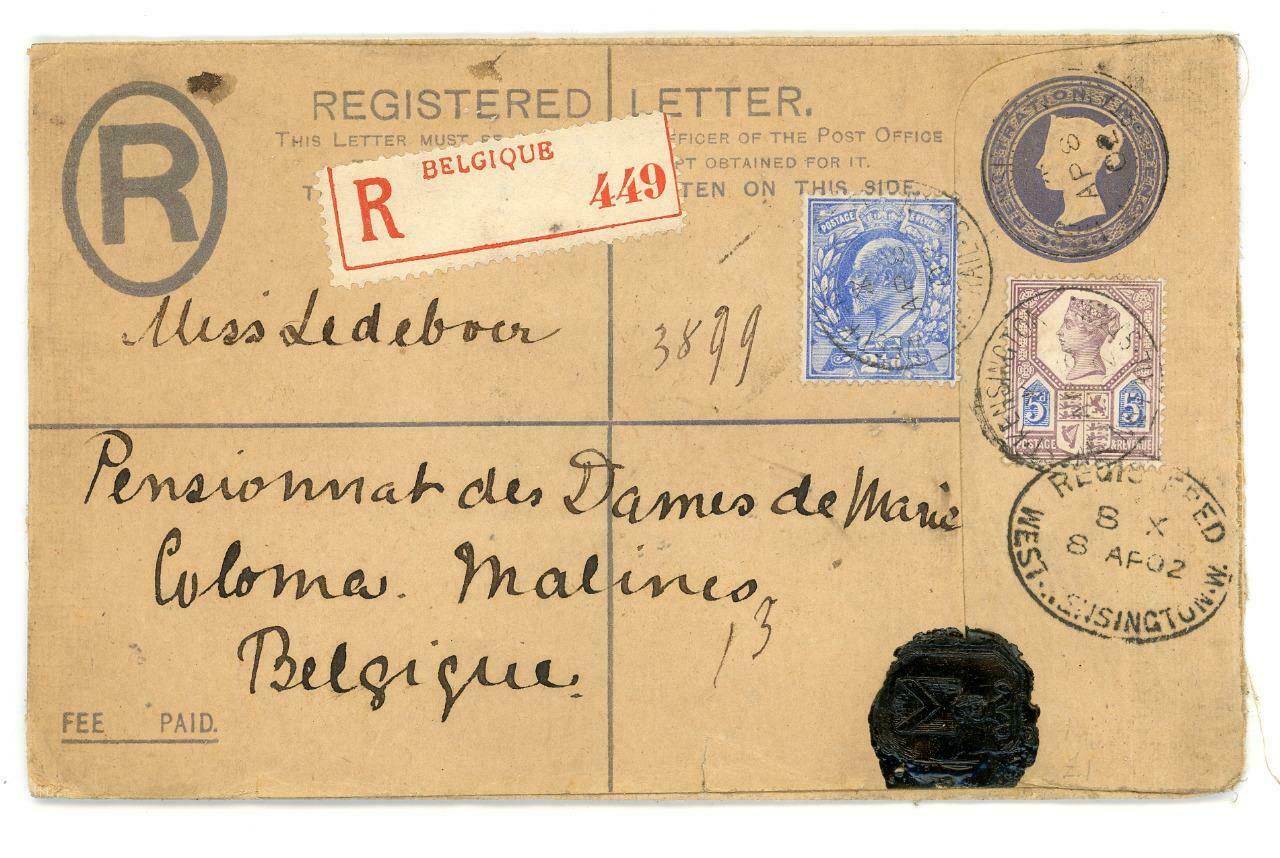 R
REGISTERED LETTER.
THIS LETTER MUST OFFICER OF THE POST OFFICE
OBTAINED FOR IT.
ON THIS SIDE.
BELGIQUE
R 449
Miss Ledeboer
3899
Pensionnat des Dames de Marie
Coloma. Malines,
13
Belgique.
FEE PAID.
POSTAGE & REVENUE
AP 8
02
AP 8
5d 5d
POSTAGE & REVENUE
REGISTERED
8 X
8 AP 02
WEST KENSINGTON. W.
M